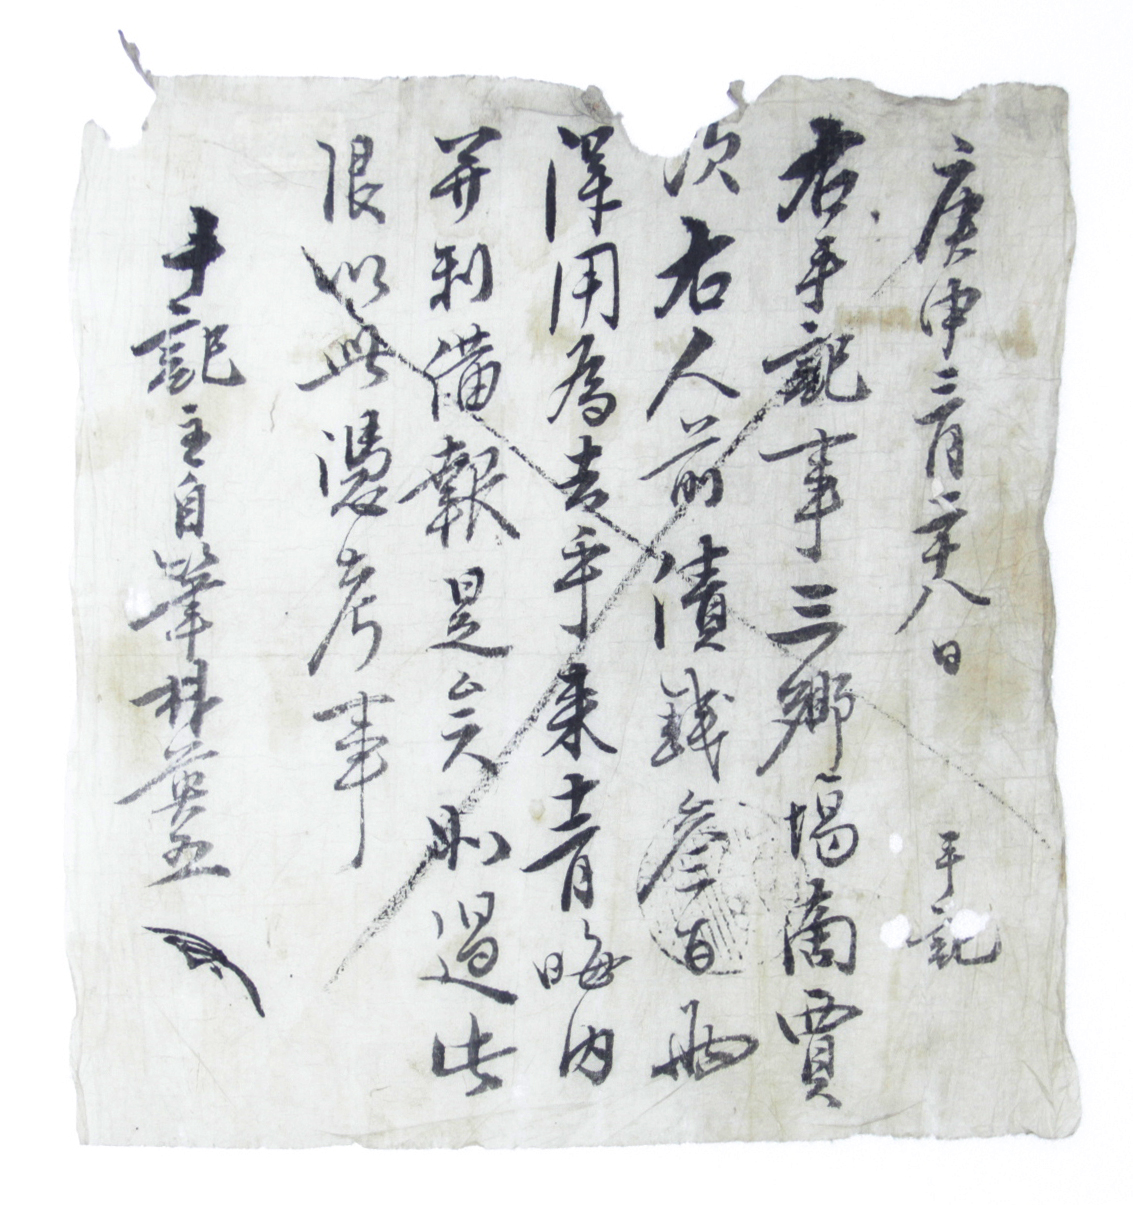 庚申三月二十八日 手記
右手記事三鄕場商賈
次右人前債錢叁百兩
淂用爲去乎來十二月晦内
并利備報是矣如過此
限以此憑考事
手記主自筆林英五